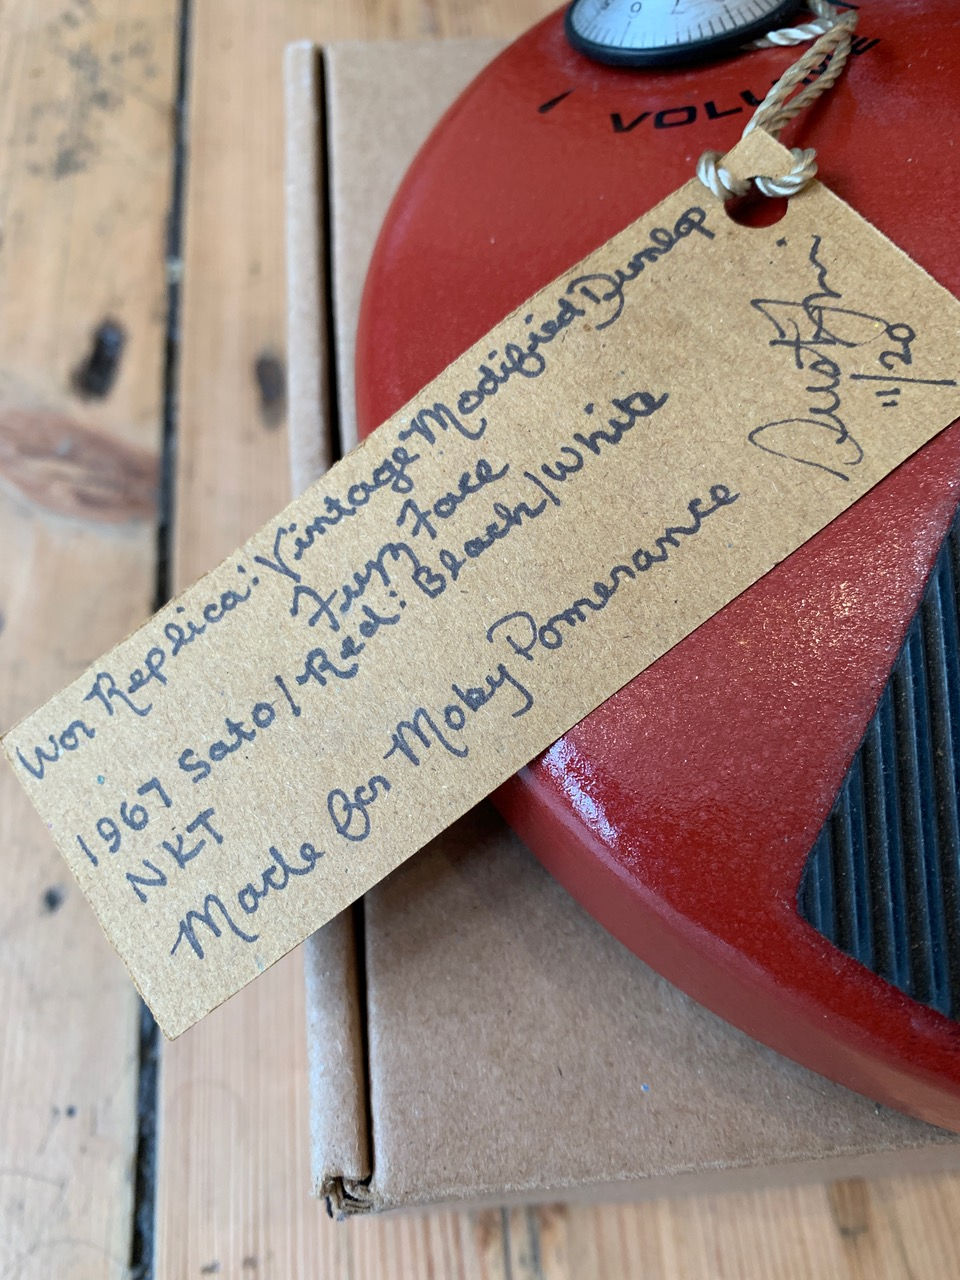 VOLUME
Wor Replica: Vintage Modified Dunlop
Fuzz Face
1967 Sato / Red: Black/White
NKT
Made For Moby Pomerance
11/20